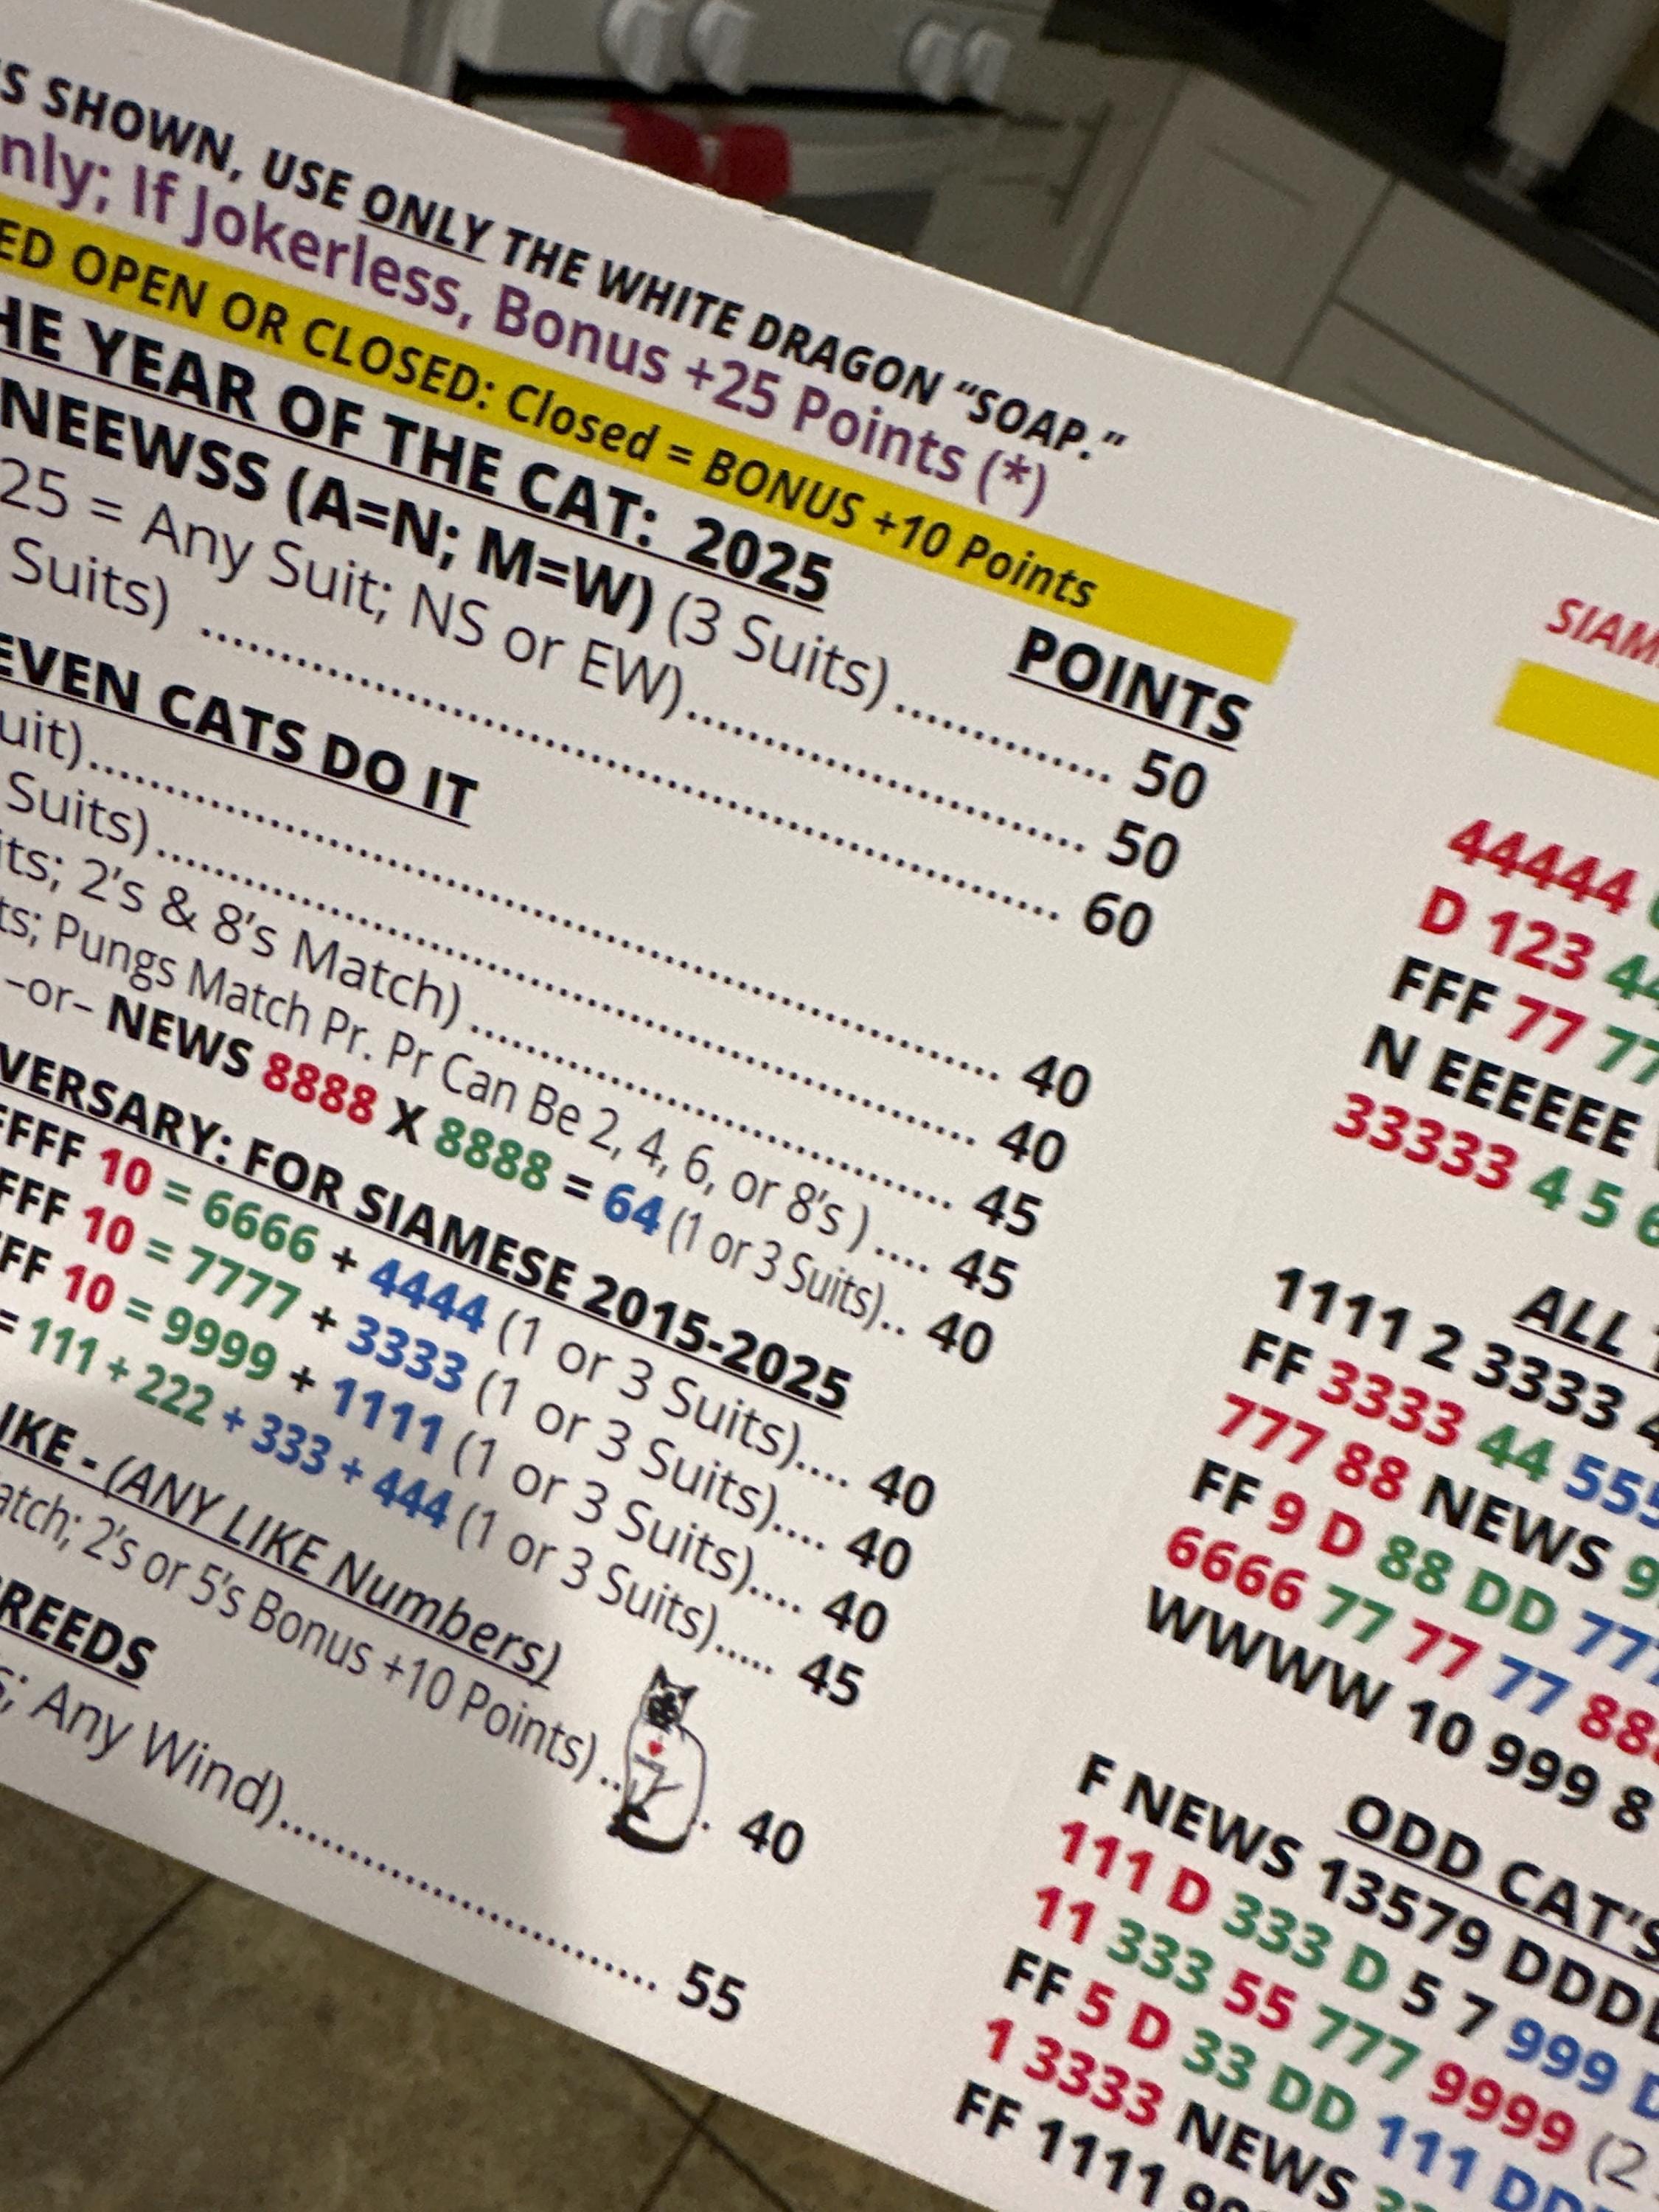 SHOWN, USE ONLY THE WHITE DRAGON “SOAP.”
If Jokerless, Bonus +25 Points (*)
OPEN OR CLOSED: Closed = BONUS +10 Points
YEAR OF THE CAT: 2025
POINTS
NEEWSS (A=N; M=W) (3 Suits).......... 50
25 = Any Suit; NS or EW).................... 50
Suits) ........................................ 60
EVEN CATS DO IT
............................................. 40
Suits)........................................ 40
2's & 8's Match) ........................ 45
Pungs Match Pr. Pr Can Be 2, 4, 6, or 8's ) .... 45
–or– NEWS 8888 X 8888 = 64 (1 or 3 Suits).. 40
FOR SIAMESE 2015-2025
10 = 6666 + 4444 (1 or 3 Suits).... 40
10 = 7777 + 3333 (1 or 3 Suits).... 40
10 = 9999 + 1111 (1 or 3 Suits).... 40
= 111 + 222 + 333 + 444 (1 or 3 Suits)..... 45
- (ANY LIKE Numbers)
2's or 5's Bonus +10 Points) ... 40
Any Wind)................................. 55
44444
D 123
FFF 77
N EEEEEE
33333 4 5
ALL
1111 2 3333
FF 3333 44
777 88 NEWS
FF 9 D 88 DD
6666 77 77 77
WWWW 10 999 8
ODD CAT'S
F NEWS 13579
111 D 333 D 5 7 999
11 333 55 777 9999 (2
FF 5 D 33 DD 111
1 3333 NEWS
FF 1111